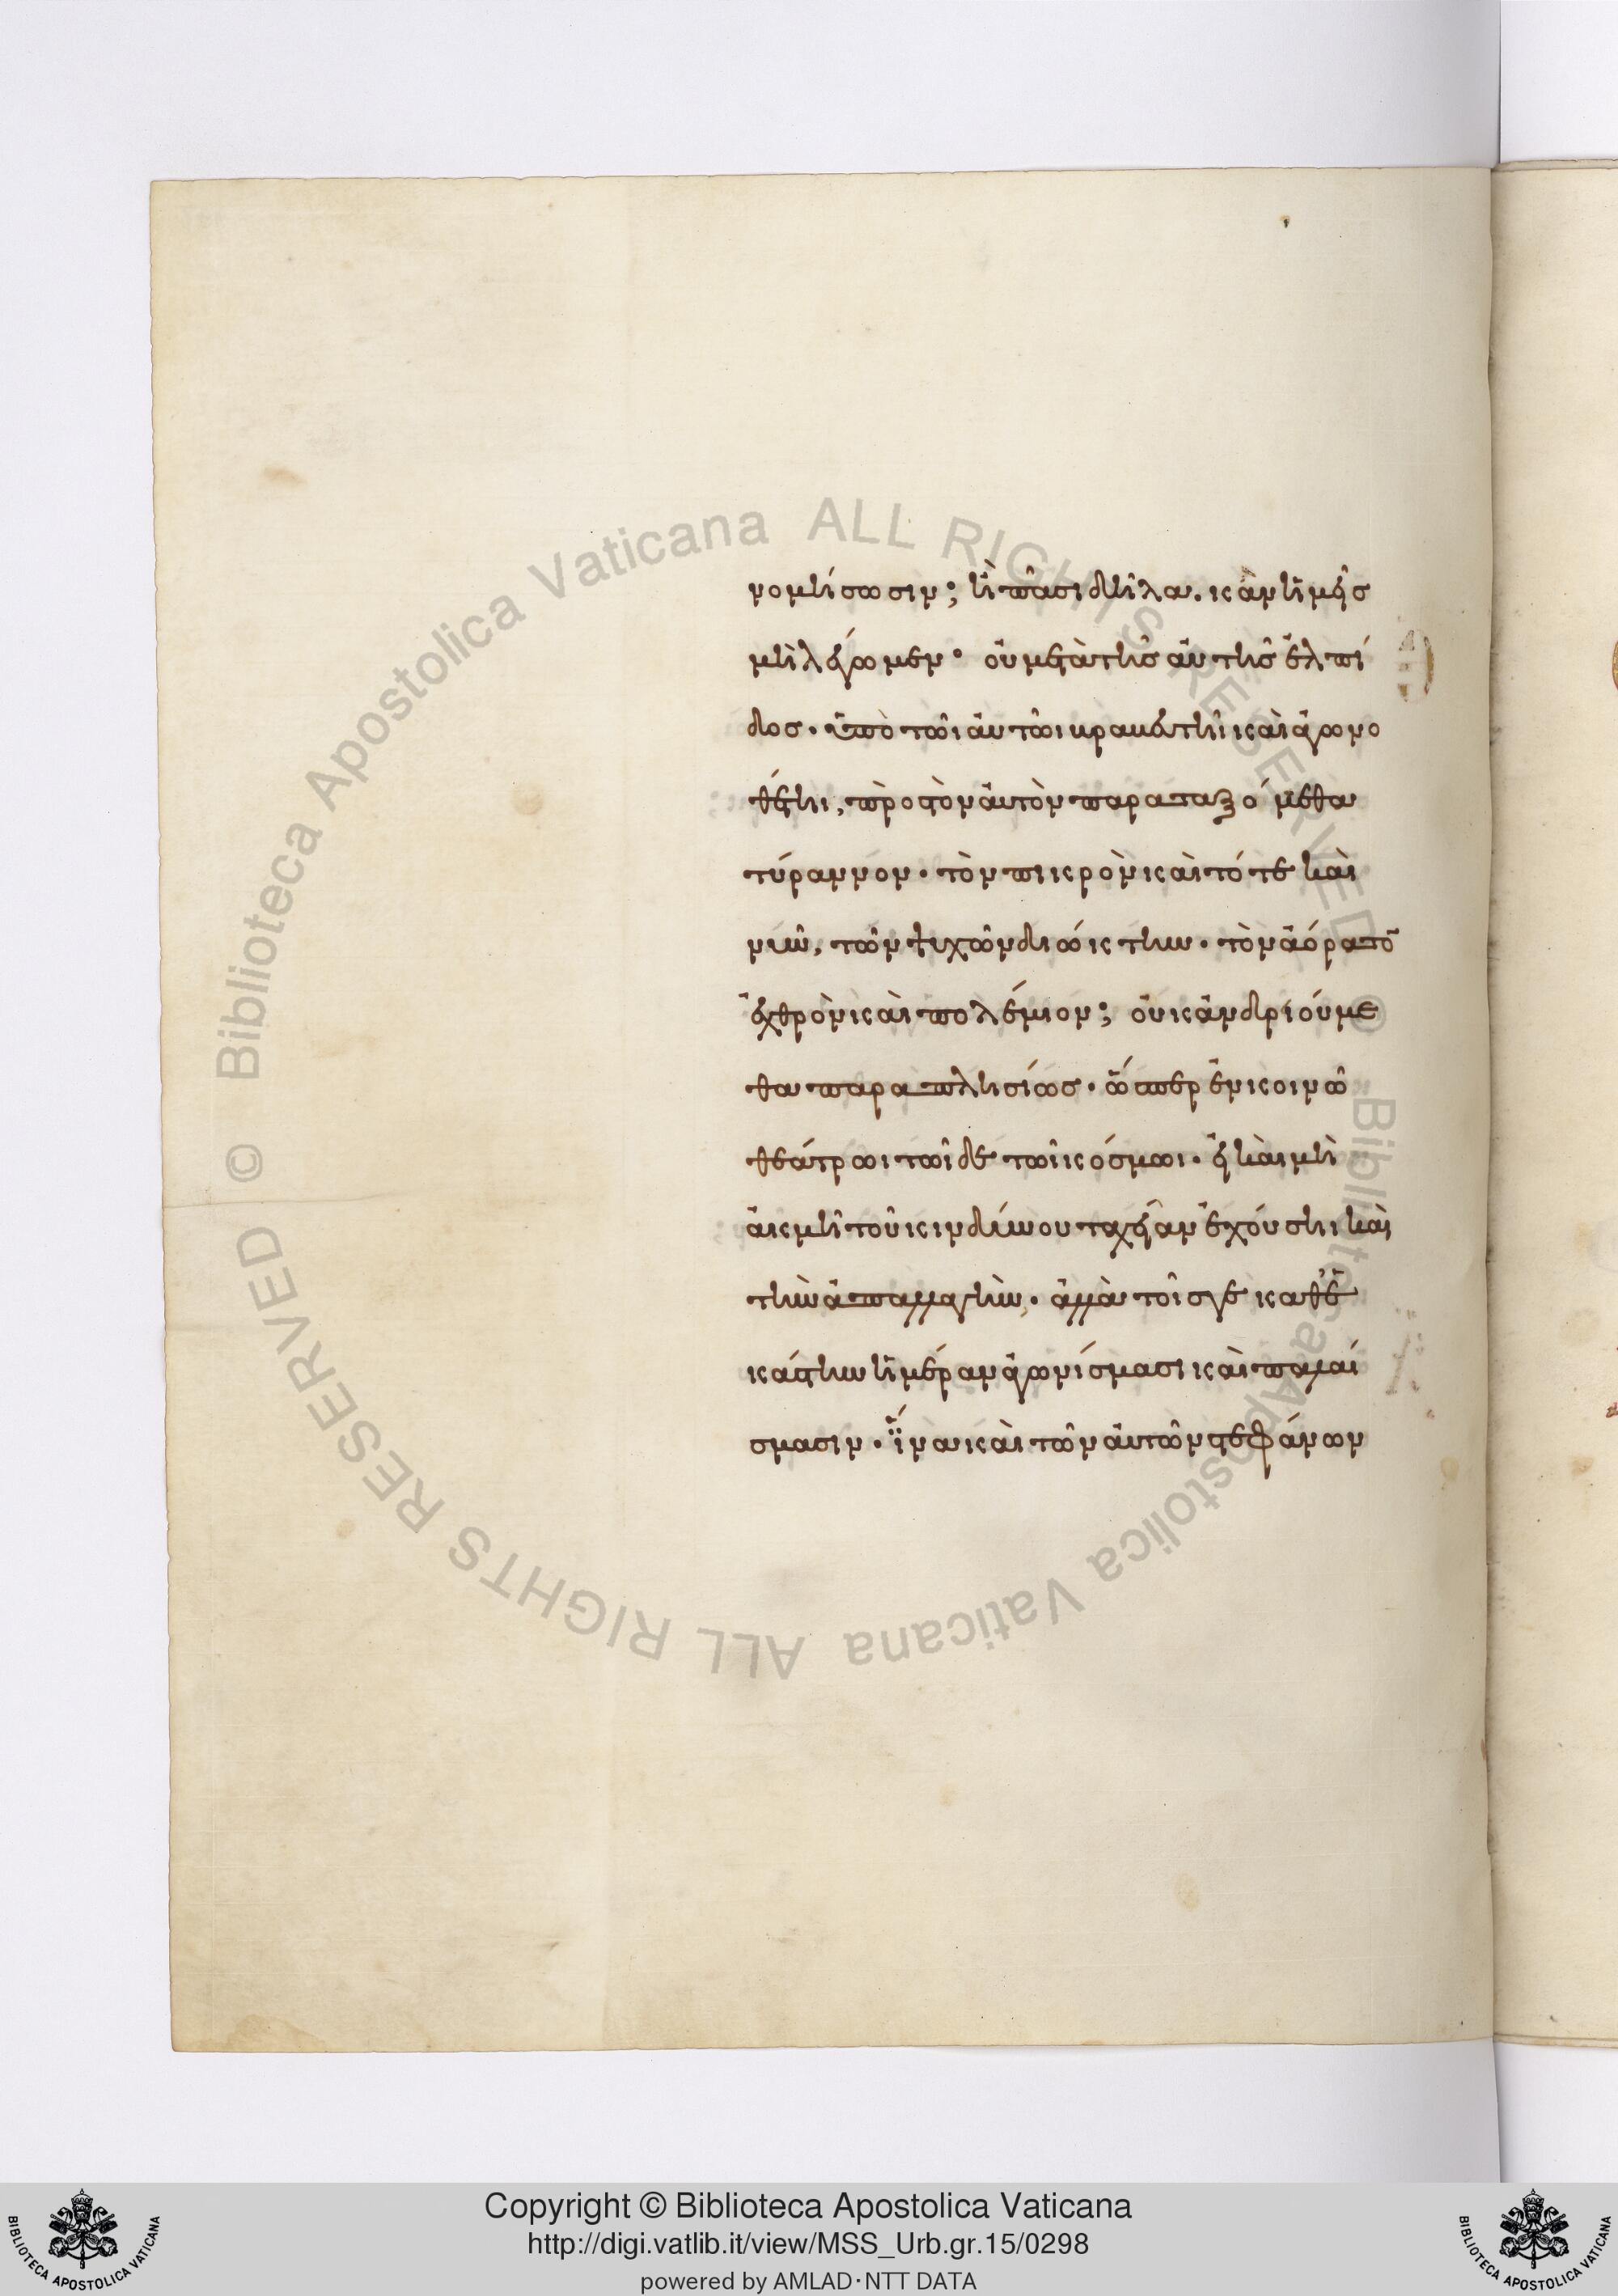 νομήσωσιν; ἢ πᾶσι δῆλα. κἂν ἡμεῖς
μὴ λέγωμεν· οὐ μετὰ τῆς αὐτῆς ἐλπί
δος. ὑπὸ τῶι αὐτῶι κριτῆι καὶ ἀγωνο
θέτηι, πρὸς τὸν αὐτὸν παραταξόμεθα
τύραννον. τὸν πικρὸν καὶ τότε καὶ
νῦν, τῶν ψυχῶν διώκτην. τὸν ἀόρατο̄
ἐχθρὸν καὶ πολέμιον; οὐκ ἀνδριούμε
θα παραπλησίως. ὥσπερ ἐν κοινῶ
θεάτρωι τῶιδε τῶι κόσμωι. εἰ καὶ μὴ
ἀκμῆ τοῦ κινδύνου ταχεῖαν ἐχούσηι καὶ
τὴν ἀπαλλαγὴν. ἀλλὰ τοῖς γε καθ' ἑ
κάστην ἡμέραν ἀγωνίσμασι καὶ παλαί
σμασιν. ἵνα καὶ τῶν αὐτῶν στεφάνων
Copyright © Biblioteca Apostolica Vaticana
http://digi.vatlib.it/view/MSS_Urb.gr.15/0298
powered by AMLAD·NTT DATA
BIBLIOTECA APOSTOLICA VATICANA
BIBLIOTECA APOSTOLICA VATICANA
© Biblioteca Apostolica Vaticana ALL RIGHTS RESERVED
© Biblioteca Apostolica Vaticana ALL RIGHTS RESERVED